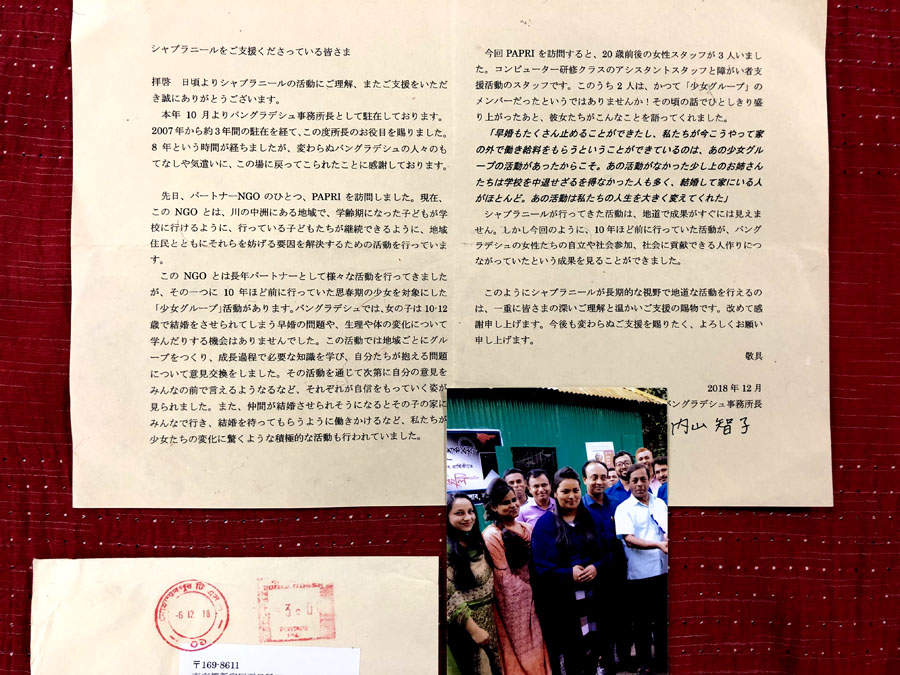 シャプラニールをご支援くださっている皆さま
拝啓　日頃よりシャプラニールの活動にご理解、またご支援をいただ
き誠にありがとうございます。
本年 10 月よりバングラデシュ事務所長として駐在しております。
2007年から約３年間の駐在を経て、この度所長のお役目を賜りました。
8 年という時間が経ちましたが、変わらぬバングラデシュの人々のも
てなしや気遣いに、この場に戻ってこられたことに感謝しております。
先日、パートナーNGO のひとつ、PAPRI を訪問しました。現在、
この NGO とは、川の中洲にある地域で、学齢期になった子どもが学
校に行けるように、行っている子どもたちが継続できるように、地域
住民とともにそれらを妨げる要因を解決するための活動を行っていま
す。
この NGO とは長年パートナーとして様々な活動を行ってきました
が、その一つに 10 年ほど前に行っていた思春期の少女を対象にした
「少女グループ」活動があります。バングラデシュでは、女の子は 10-12
歳で結婚をさせられてしまう早婚の問題や、生理や体の変化について
学んだりする機会はありませんでした。この活動では地域ごとにグル
ープをつくり、成長過程で必要な知識を学び、自分たちが抱える問題
について意見交換をしました。その活動を通じて次第に自分の意見を
みんなの前で言えるようなるなど、それぞれが自信をもっていく姿が
見られました。また、仲間が結婚させられそうになるとその子の家に
みんなで行き、結婚を待ってもらうように働きかけるなど、私たちが
少女たちの変化に驚くような積極的な活動も行われていました。
今回 PAPRI を訪問すると、20 歳前後の女性スタッフが 3 人いまし
た。コンピューター研修クラスのアシスタントスタッフと障がい者支
援活動のスタッフです。このうち 2 人は、かつて「少女グループ」の
メンバーだったというではありませんか！その頃の話でひとしきり盛
り上がったあと、彼女たちがこんなことを語ってくれました。
「早婚もたくさん止めることができたし、私たちが今こうやって家
の外で働き給料をもらうということができているのは、あの少女グル
ープの活動があったからこそ。あの活動がなかった少し上のお姉さん
たちは学校を中退せざるを得なかった人も多く、結婚して家にいる人
がほとんど。あの活動は私たちの人生を大きく変えてくれた」
シャプラニールが行ってきた活動は、地道で成果がすぐには見えま
せん。しかし今回のように、10 年ほど前に行っていた活動が、バング
ラデシュの女性たちの自立や社会参加、社会に貢献できる人作りにつ
ながっていたという成果を見ることができました。
このようにシャプラニールが長期的な視野で地道な活動を行えるの
は、一重に皆さまの深いご理解と温かいご支援の賜物です。改めて感
謝申し上げます。今後も変わらぬご支援を賜りたく、よろしくお願い
申し上げます。
敬具
2018 年 12 月
バングラデシュ事務所長
内山 智子
-6 12 18
〒169-8611